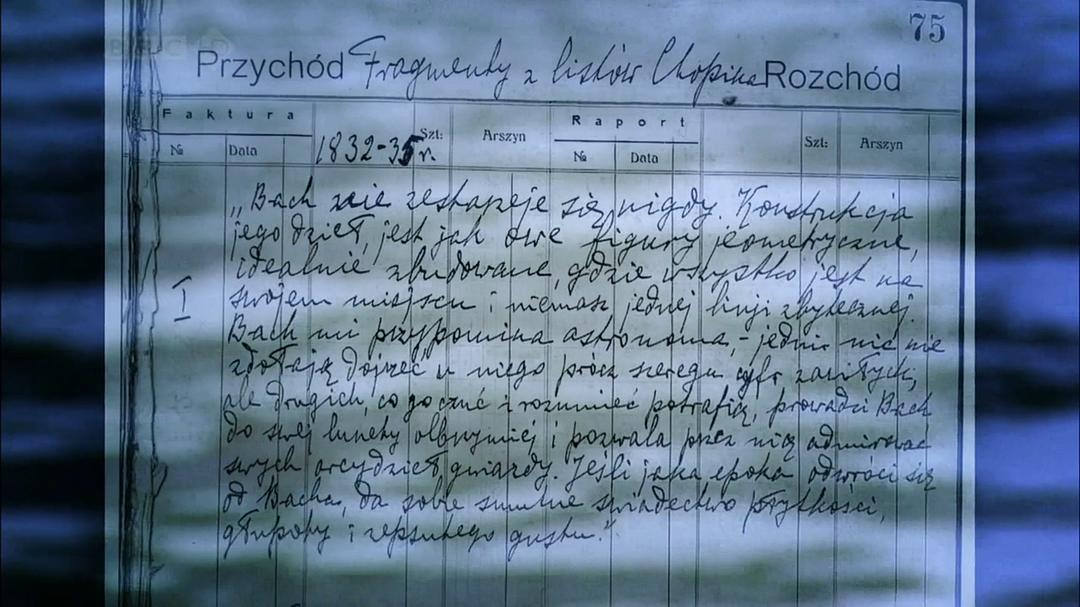 75
Przychód Fragmenty z listów Chopina Rozchód
Faktura Raport
№ Data 1832-35 r. Szt: Arszyn № Data Szt: Arszyn
„Bach nie zestarzeje się nigdy. Konstrukcja
jego dzieł, jest jak owe figury jeometryczne,
idealnie zbudowane, gdzie wszystko jest na
I
swojem miejscu i niemasz jednej linji zbytecznej.
Bach mi przypomina astronoma, - jedni nic nie
zdołają dojrzeć u niego prócz szeregu cyfr zawiłych,
ale drugich, co go czuć i rozumieć potrafią, prowadzi Bach
do swej lunety olbrzymiej i pozwala przez nią admirować
swych arcydzieł gwiazdy. Jeśli jaka epoka odwróci się
od Bacha, da sobie smutne świadectwo płytkości,
głupoty i zepsutego gustu."